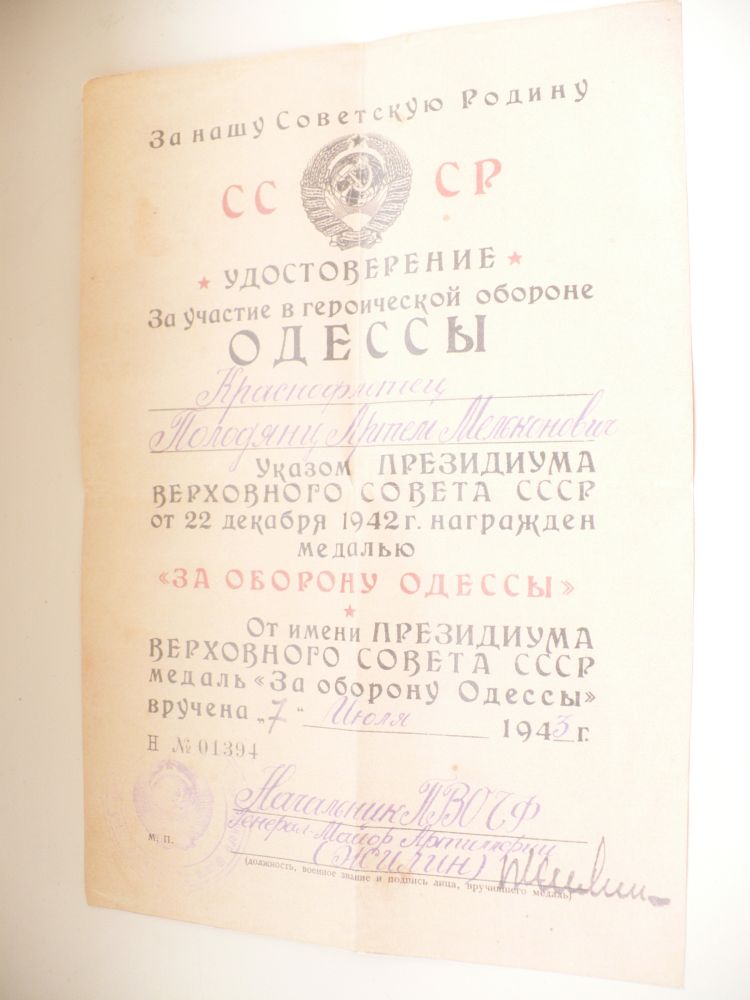 За нашу Советскую Родину
СС СР
УДОСТОВЕРЕНИЕ
За участие в героической обороне
ОДЕССЫ
Краснофлотец
Полодянц Артем Мелконович
Указом ПРЕЗИДИУМА
ВЕРХОВНОГО СОВЕТА СССР
от 22 декабря 1942 г. награжден
медалью
«ЗА ОБОРОНУ ОДЕССЫ»
От имени ПРЕЗИДИУМА
ВЕРХОВНОГО СОВЕТА СССР
медаль «За оборону Одессы»
вручена „7“ Июля 1943 г.
Н № 01394
Начальник ПВО ЧФ
Генерал-Майор Артиллерии
м. п.
(Жилин)
(должность, военное звание и подпись лица, вручившего медаль)